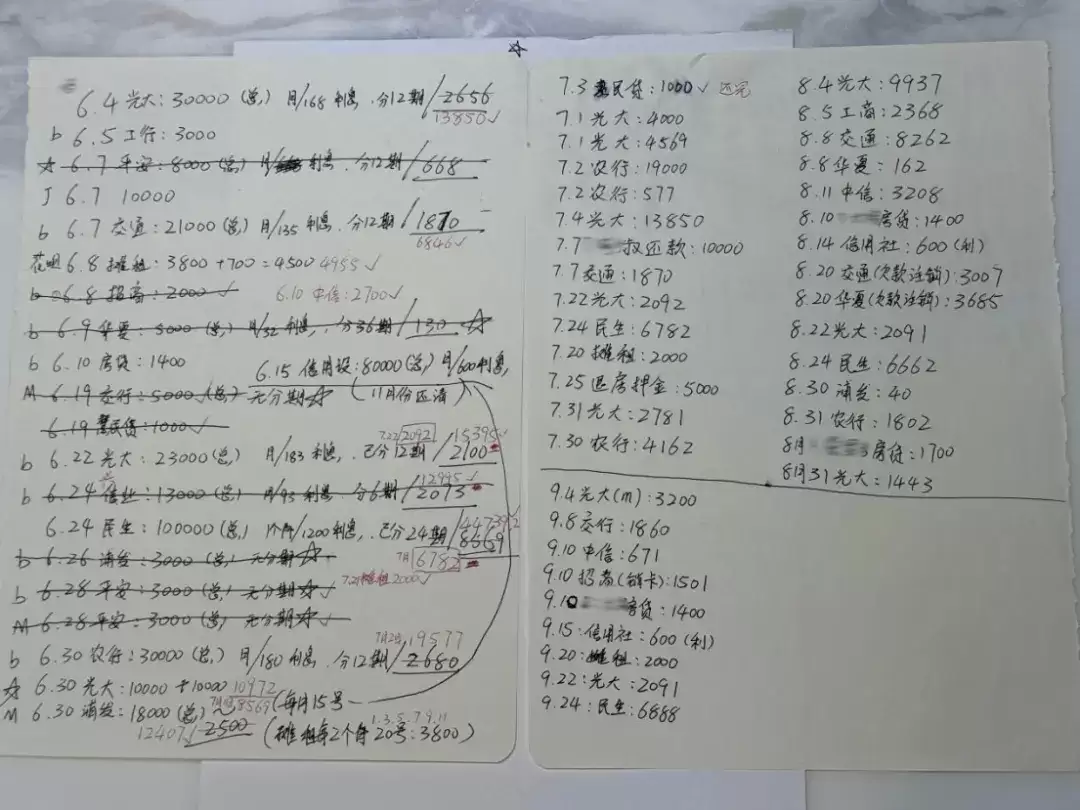 6.4 光大：30000（总） 月/168利息，分12期/2656
13850✓
b 6.5 工行：3000
☆ 6.7 平安：8000（总） 月/利息，分12期/668
J 6.7 10000
b 6.7 交通：21000（总） 月/135利息，分12期/1870
6846✓
花呗 6.8 摊租：3800+700=4500 4955✓
b 6.8 招商：2000✓
6.10 中信：2700✓
b 6.9 华夏：5000（总）月/32利息，分36期/130 ☆
b 6.10 房贷：1400
6.15 信用设：80000（总）月/600利息，
M 6.19 交行：5000（总）无分期☆（11月份还清）
6.19 惠民贷：1000✓
7.22 2092 15395✓
b 6.22 光大：23000（总） 月/183利息，已分12期/2100
12995✓
b 6.24 兴业：13000（总）月/93利息，分6期/2073
6.24 民生：100000（总） 1个月/1200利息，已分24期/8669
7月 6782
b 6.26 浦发：3000（总）无分期☆
7.29摊租2000✓
b 6.28 平安：3000（总）无分期☆✓
M 6.28 平安：3000（总）无分期☆✓
7月2号，19577
b 6.30 农行：30000（总）月/180利息，分12期/2680
☆ 6.30 光大：10000+10000 10972
M 6.30 浦发：18000（总） 8569（每月15号
12407✓ 2500（摊租每2个月20号：3800）
1.3.5.7.9.11
7.3 惠民贷：1000✓ 还完
7.1 光大：4000
7.1 光大：4569
7.2 农行：19000
7.2 农行：577
7.4 光大：13850
7.7 叔还款：10000
7.7 交通：1870
7.22 光大：2092
7.24 民生：6782
7.20 摊租：2000
7.25 退房押金：5000
7.31 光大：2781
7.30 农行：4162
8.4 光大：9937
8.5 工商：2368
8.8 交通：8262
8.8 华夏：162
8.11 中信：3208
8.10 房贷：1400
8.14 信用社：600（利）
8.20 交通（欠款注销）3007
8.20 华夏（欠款注销）：3685
8.22 光大：2091
8.24 民生：6662
8.30 浦发：40
8.31 农行：1802
8月 房贷：1700
8月31 光大：1443
9.4 光大（m）：3200
9.8 交行：1860
9.10 中信：671
9.10 招商（销卡）：1501
9.10 房贷：1400
9.15：信用社：600（利）
9.20：摊租：2000
9.22：光大：2091
9.24：民生：6888